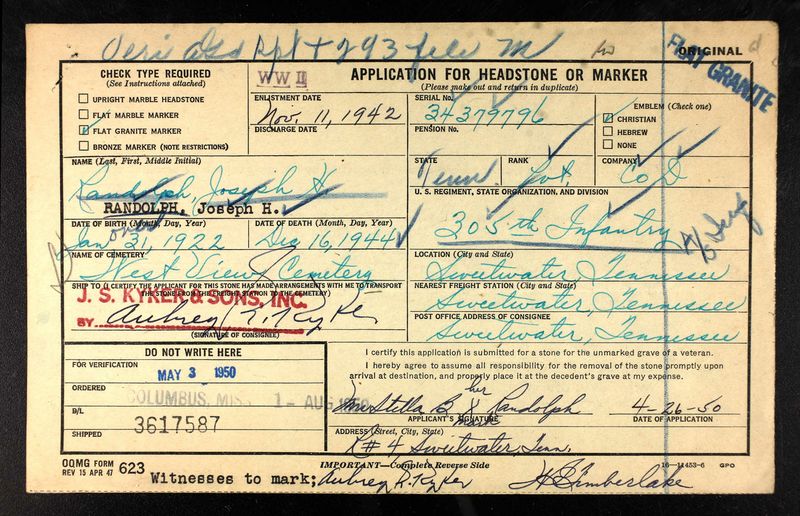 Veri a&s Rpt + 293 file M
ORIGINAL
FLAT GRANITE
CHECK TYPE REQUIRED
(See Instructions attached)
UPRIGHT MARBLE HEADSTONE
FLAT MARBLE MARKER
FLAT GRANITE MARKER
BRONZE MARKER (NOTE RESTRICTIONS)
WW II
APPLICATION FOR HEADSTONE OR MARKER
(Please make out and return in duplicate)
ENLISTMENT DATE
Nov. 11, 1942
DISCHARGE DATE
SERIAL No.
34379796
PENSION No.
EMBLEM (Check one)
CHRISTIAN
HEBREW
NONE
NAME (Last, First, Middle Initial)
Randolph, Joseph H
RANDOLPH, Joseph H.
STATE
Tenn.
RANK
Pvt.
COMPANY
Co D
U. S. REGIMENT, STATE ORGANIZATION, AND DIVISION
305th Infantry
DATE OF BIRTH (Month, Day, Year)
Jan 31, 1922
DATE OF DEATH (Month, Day, Year)
Dec 16, 1944
NAME OF CEMETERY
West View Cemetery
LOCATION (City and State)
Sweetwater, Tennessee
SHIP TO (I CERTIFY THE APPLICANT FOR THIS STONE HAS MADE ARRANGEMENTS WITH ME TO TRANSPORT THE STONE FROM THE FREIGHT STATION TO THE CEMETERY)
J. S. KYKER & SONS, INC.
BY Aubrey R. Kyker
(SIGNATURE OF CONSIGNEE)
NEAREST FREIGHT STATION (City and State)
Sweetwater, Tennessee
POST OFFICE ADDRESS OF CONSIGNEE
Sweetwater, Tennessee
DO NOT WRITE HERE
FOR VERIFICATION
MAY 3 1950
ORDERED
COLUMBUS, MISS. 1 - AUG 1950
B/L
3617587
SHIPPED
I certify this application is submitted for a stone for the unmarked grave of a veteran.
I hereby agree to assume all responsibility for the removal of the stone promptly upon
arrival at destination, and properly place it at the decedent's grave at my expense.
her
Mrs Stella B. X Randolph
mark
4-26-50
APPLICANT'S SIGNATURE
DATE OF APPLICATION
ADDRESS (Street, City, State)
R# 4 Sweetwater, Tenn.
OQMG FORM
REV 15 APR 47
623
IMPORTANT—Complete Reverse Side
16—11453-6 GPO
Witnesses to mark; Aubrey R. Kyker